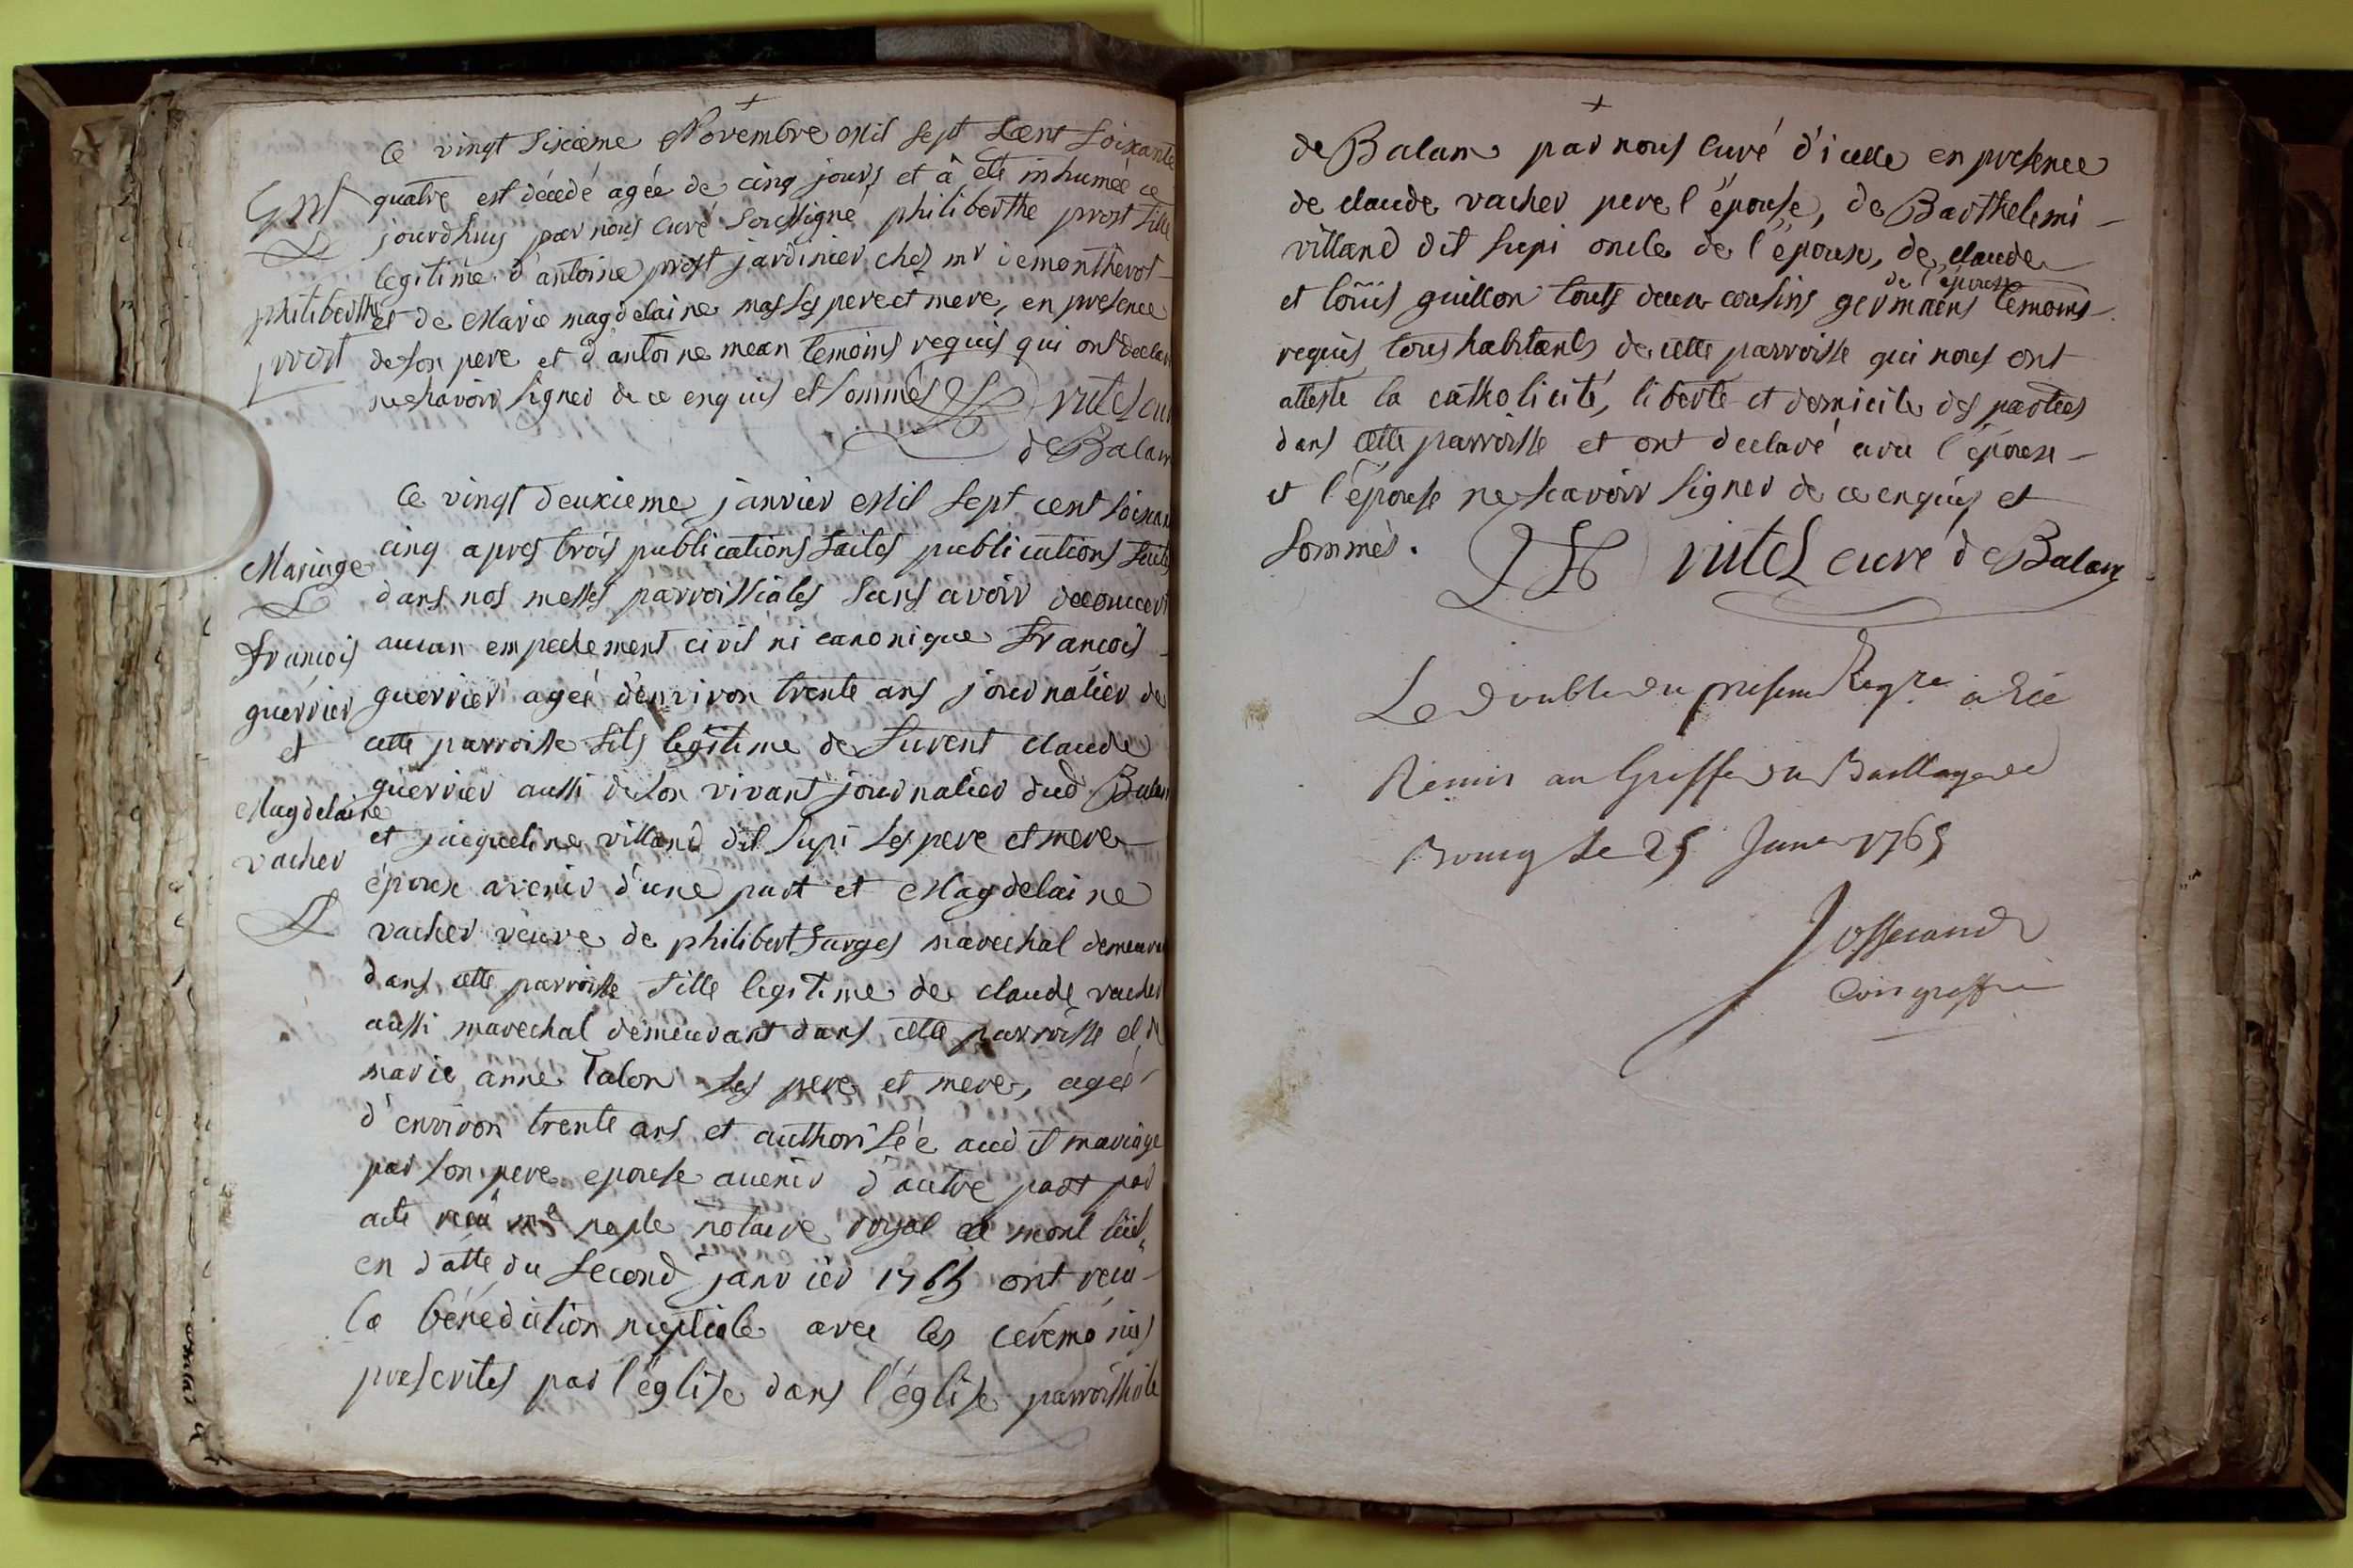 Ce vingt sixieme Novembre Mil sept Cent soixante
quatre est décedé agée de cinq jours et à été inhumée ce
Ent
jourdhuy par nous curé soussigné philiberthe prost fille
legitime d'antoine prost jardinier chez mr demonthevost
philiberthe
prost
et de Marie magdelaine mas ses pere et mere, en presence
de son pere et d'antoine mean temoins requis qui ont declaré
ne scavoir signer de ce enquis et sommés
rutes curé
de Balan
Ce vingt deuxieme janvier Mil sept cent soixante
cinq apres trois publications faites publications faites
Mariage
dans nos messes parroissiales sans avoir decouvert
François
guerrier
et
Magdelaine
vacher
aucun empechement civil ni canonique François
guerrier agée d'environ trente ans journalier de
cette parroisse fils legitime de furent claude
guerrier aussi de son vivant journalier dud Balan
et jacqueline villand dit supi ses pere et mere
époux avenir d'une part et Magdelaine
vacher veuve de philibert farges marechal demeurant
dans cette parroisse fille legitime de claude vacher
aussi marechal demeurant dans cette parroisse et de
marie anne Talon ses pere et mere, ageé
d'environ trente ans et authorisée audit mariage
par son pere epouse avenir d'autre part par
acte reçu me notaire royal de mont luel
en datte du second janvier 1765 ont reçu
la bénédiction nuptiale avec les cérémonies
prescrites par l'église dans l'église parroissiale
de Balan par nous Curé d'icelle en presence
de claude vacher pere l'épouse, de Barthelemi
villand dit supi oncle de l'époux, de claude
et loüis guillon touts deux cousins germains de l'époux temoins
requis tous habitants de cette parroisse qui nous ont
attesté la catholicité, liberté et domicile des parties
dans cette parroisse et ont declaré avec l'époux
et l'épouse ne scavoir signer de ce enquis et
sommés.
rutes curé de Balan
Le double du présent Regre a été
Remis au Greffe du Baillage de
Bourg le 25 Janer 1765
Josserand
Comgreffier